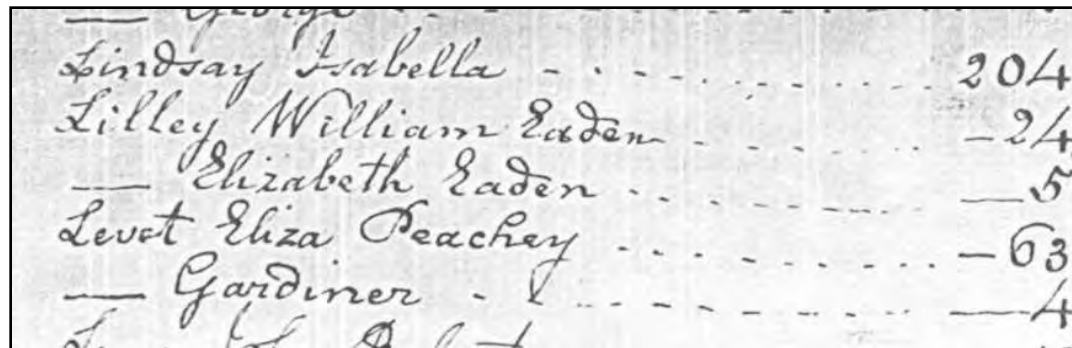 —— George - - - - - - - - -
Lindsay Isabella - - - - - - - - - 204
Lilley William Eaden - - - - - - -24
—— Elizabeth Eaden - - - - - - - —5
Levet Eliza Peachey - - - - - - - - -63
—— Gardiner - - - - - - - - - —4